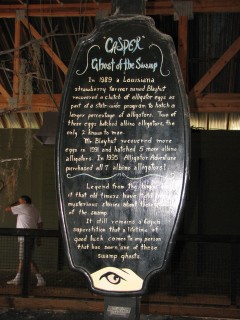 "CASPER"
Ghost of the Swamp
In 1989 a Louisiana
strawberry farmer named Blayhut
recovered a clutch of alligator eggs as
part of a state-wide program to hatch a
larger percentage of alligators. Two of
these eggs hatched albino alligators, the
only 2 known to man.
Mr. Blayhut recovered more
eggs in 1991 and hatched 5 more albino
alligators. In 1995 Alligator Adventure
purchased all 7 albino alligators!
Legend from the
it that old timers have told
mysterious stories about
of the swamp.
It still remains a
superstition that a lifetime of
good luck comes to any person
that has seen one of these
swamp ghosts.